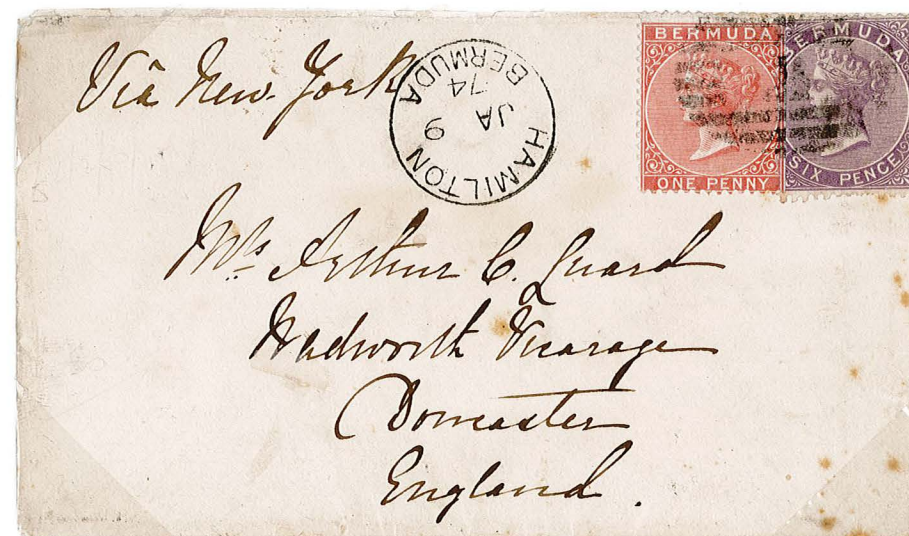 Via New York
HAMILTON
BERMUDA
JA 9
74
BERMUDA
ONE PENNY
BERMUDA
SIX PENCE
Mrs Arthur C.
Wadworth Vicarage
Doncaster
England.